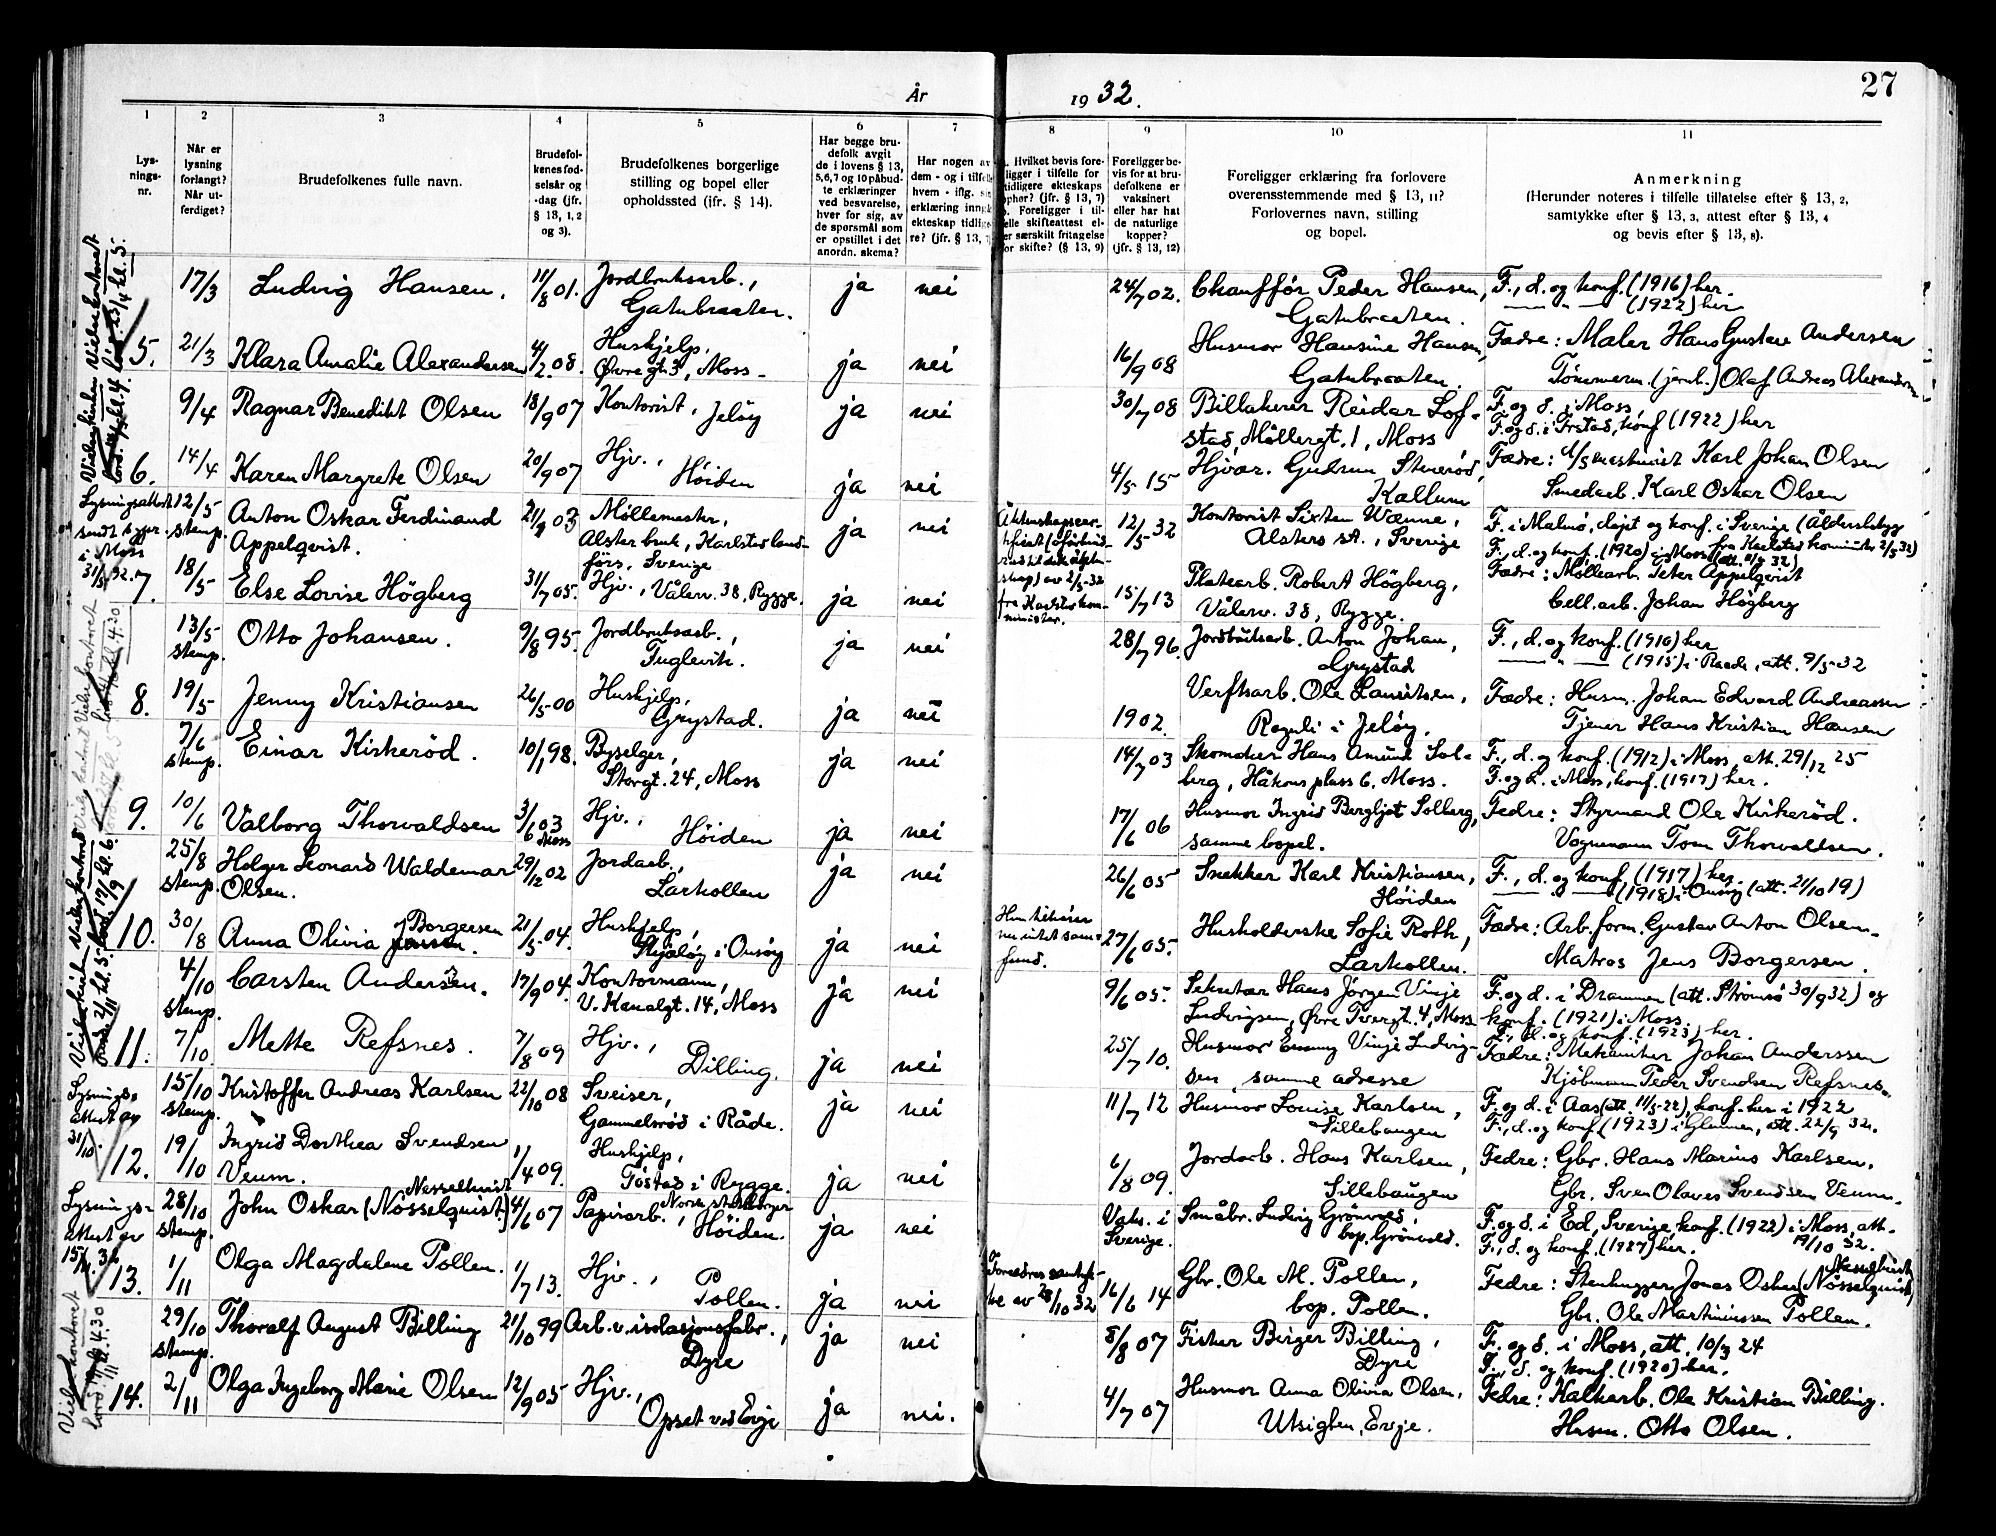 27
År 1932.
1
2
3
4
5
6
7
8
9
10
11
Lys-
nings-
nr.
Når er
lysning
forlangt?
Når ut-
ferdiget?
Brudefolkenes fulle navn.
Brudefol-
kenes fød-
selsår og
-dag (jfr.
§ 13, 1, 2
og 3).
Brudefolkenes borgerlige
stilling og bopel eller
opholdssted (jfr. § 14).
Har begge bru-
defolk avgit
de i lovens § 13,
5, 6, 7 og 10 påbud-
te erklæringer
ved besvarelse,
hver for sig, av
de spørsmål som
er opstillet i det
anordn. skema?
Har nogen av
dem - og i tilfelle
hvem - iflg. sin
erklæring inngått
ekteskap tidlige-
re? (jfr. § 13,
Hvilket bevis fore-
ligger i tilfelle for
tidligere ekteskaps
ophør? (jfr. § 13, 7)
Foreligger i til-
felle skifteattest el-
ler særskilt fritagelse
for skifte? (§ 13, 9)
Foreligger be-
vis for at bru-
defolkene er
vaksinert
eller har hat
de naturlige
kopper?
(jfr. § 13, 12)
Foreligger erklæring fra forlovere
overensstemmende med § 13, 11?
Forlovernes navn, stilling
og bopel.
Anmerkning
(Herunder noteres i tilfelle tillatelse efter § 13, 2,
samtykke efter § 13, 3, attest efter § 13, 4
og bevis efter § 13, 8).
17/3 Ludvig Hansen. 11/8 01. Jordbruksarb., ja nei 24/7 02. Chauffør Peder Hansen, F., d. og konf. (1916) her.
Gatubraaten. Gatubraaten. — " — (1922) her
5. 21/3 Klara Amalie Alexandersen 4/2 08. Huskjelp, ja nei 16/9 08 Husmor Hansine Hansen, Fædre: Maler Hans Gustav Andersen
Øvregt 3, Moss Gatubraaten. Tømmerm. (jernb.) Olaf Andreas Alexandersen
9/4 Ragnar Benedikt Olsen 18/9 07 Kontorist, Jeløy ja nei 30/7 08 Billakerer Reidar Lof- F. og d. i Moss
stad, Møllergt. 1, Moss F. og d. i Frstad, konf (1922) her
6. 14/4 Karen Margrete Olsen 20/9 07 Hjv., Høiden ja nei 4/5 15 Hjvær. Gudrun Stenerød, Fædre: Karl Johan Olsen
Kallum Smedarb. Karl Oskar Olsen
Lysningsattest
sendt
i Moss
31/5 32.
12/5 stemp. Anton Oskar Ferdinand 21/9 03 Møllemester, ja nei 12/5-32 Kontorist Sixten Wænne,
Appelqvist. Alster bruk, Karlstad lands- Alsters st., Sverige
førs., Sverige
F. i Malmö, døpt og konf. i Sverige
7. 18/5 Else Lovise Högberg 31/7 05. Hjv., Vålerv. 38, Rygge. ja nei 15/7 13 Platearb. Robert Högberg, Fædre: Møllearb. Peter Appelqvist
Vålerv. 38, Rygge. Cell.arb. Johan Högberg
13/5 stemp. Otto Johansen. 9/8 95. Jordbruksarb., ja nei 28/7 96. Jordbruksarb. Anton Johan, F., d. og konf. (1910) her
Fuglevik. Grystad — " — (1915) i Raade, att. 9/5-32
8. 19/5 Jenny Kristiansen 26/5-00 Huskjelp, ja nei 1902. Verftsarb. Ole Lauritsen, Fædre: Husm. Johan Edvard Andreassen
Grystad. i Jeløy. Tjener Hans Kristian Hansen
7/6 stemp. Einar Kirkerød. 10/1 98. Byselger, ja nei 14/7 03 Skomaker Hans Amund Sol- F., d. og konf. (1912) i Moss, att. 29/12 25
Storgt. 24, Moss berg, Håkons plass 6, Moss. F. og d. i Moss, konf. (1917) her.
9. 10/6 Valborg Thorvaldsen 3/6 03 Moss Hjv., Høiden ja nei 17/6 06 Husmor Ingrid Bergljot Solberg, Fedre: Styrmand Ole Kirkerød.
samme bopel. Vognmann Tom Thorvaldsen.
25/8 stemp. Holger Leonard Waldemar 29/12 02 Jordarb., ja nei 26/6 05 Snekker Karl Kristiansen, F., d. og konf. (1917) her.
Olsen. Larkollen Høiden — " — (1918) i Onsøy (att. 21/10 19)
10. 30/8 Anna Olivia Borgersen 21/5-04. Huskjelp, ja nei 27/6 05. Husholderske Sofie Roth, Fædre: Arb.form. Gustav Anton Olsen
i Onsøy Larkollen. Matros Jens Borgersen.
4/10 stemp. Carsten Andersen. 17/9 04. Kontormann, ja nei 9/6 05. Sekretær Hans Jørgen Vinje F. og d. i Drammen (att. Strømsø 30/9 32) og
V. Kanalgt. 14, Moss Ludvigsen, Øvre Tvergt. 4, Moss konf. (1921) i Moss.
F., d. og konf. (1923) her.
11. 7/10 Mette Refsnes. 7/8 09 Hjv., Dilling. ja nei 25/7 10. Husmor Emmy Vinje Ludvig- Fædre: Mekaniker Johan Anderssen
sen, samme adresse Kjøbmann Peder Svendsen Refsnes.
Lysnings-
attest av
31/10.
15/10 stemp. Kristoffer Andreas Karlsen 22/10 08 Sveiser, ja nei 11/7 12 Husmor Louise Karlsen, F. og d. i Aas (att. 11/5-22), konf. her i 1922
Gammelsrød i Råde. Sillebaugen F., d. og konf. (1923) i Glemmen, att. 22/9 32.
12. 19/10 Ingrid Dorthea Svendsen 1/4 09. Huskjelp, ja nei 6/8 09. Jordarb. Hans Karlsen, Fedre: Gbr. Hans Marius Karlsen.
Veum. Tøstad i Rygge. Sillebaugen Gbr. Sven Olaves Svendsen Veum.
Lysnings-
attest av
28/10 stemp. John Oskar (Nösselquist) Nesselkvist 4/6 07 Papirarb., Høiden. Norsk statsborger ja nei Vaks. i Sverige. Småbr. Ludvig Grönvold, F. og d. i Ed, Sverige, konf. (1922) i Moss, att.
bop. Grönvold. 19/10 32.
F., d. og konf. (1927) her.
13. 1/11 Olga Magdalene Pollen. 1/7 13. Hjv., Pollen. ja nei Foreldres samtyk-
ke av 28/10 32 16/6 14 Gbr. Ole M. Pollen, Fedre: Stenhugger Jonas Oskar (Nösselquist) Nesselkvist
bop. Pollen. Gbr. Ole Martiniussen Pollen.
29/10 stemp. Thoralf August Billing 21/10 99 Arb. v. isolasjonsfabr., ja nei 8/8 07 Fisker Birger Billing, F. og d. i Moss, att. 10/3 24
Dyre Dyre F., d. og konf. (1920) her.
14. 2/11 Olga Ingeborg Marie Olsen 12/9 05 Hjv., ja nei. 4/7 07 Husmor Anna Olivia Olsen, Fedre: Kalkarb. Ole Kristian Billing.
Opset ved Evje Utsigten, Evje. Husm. Otto Olsen.